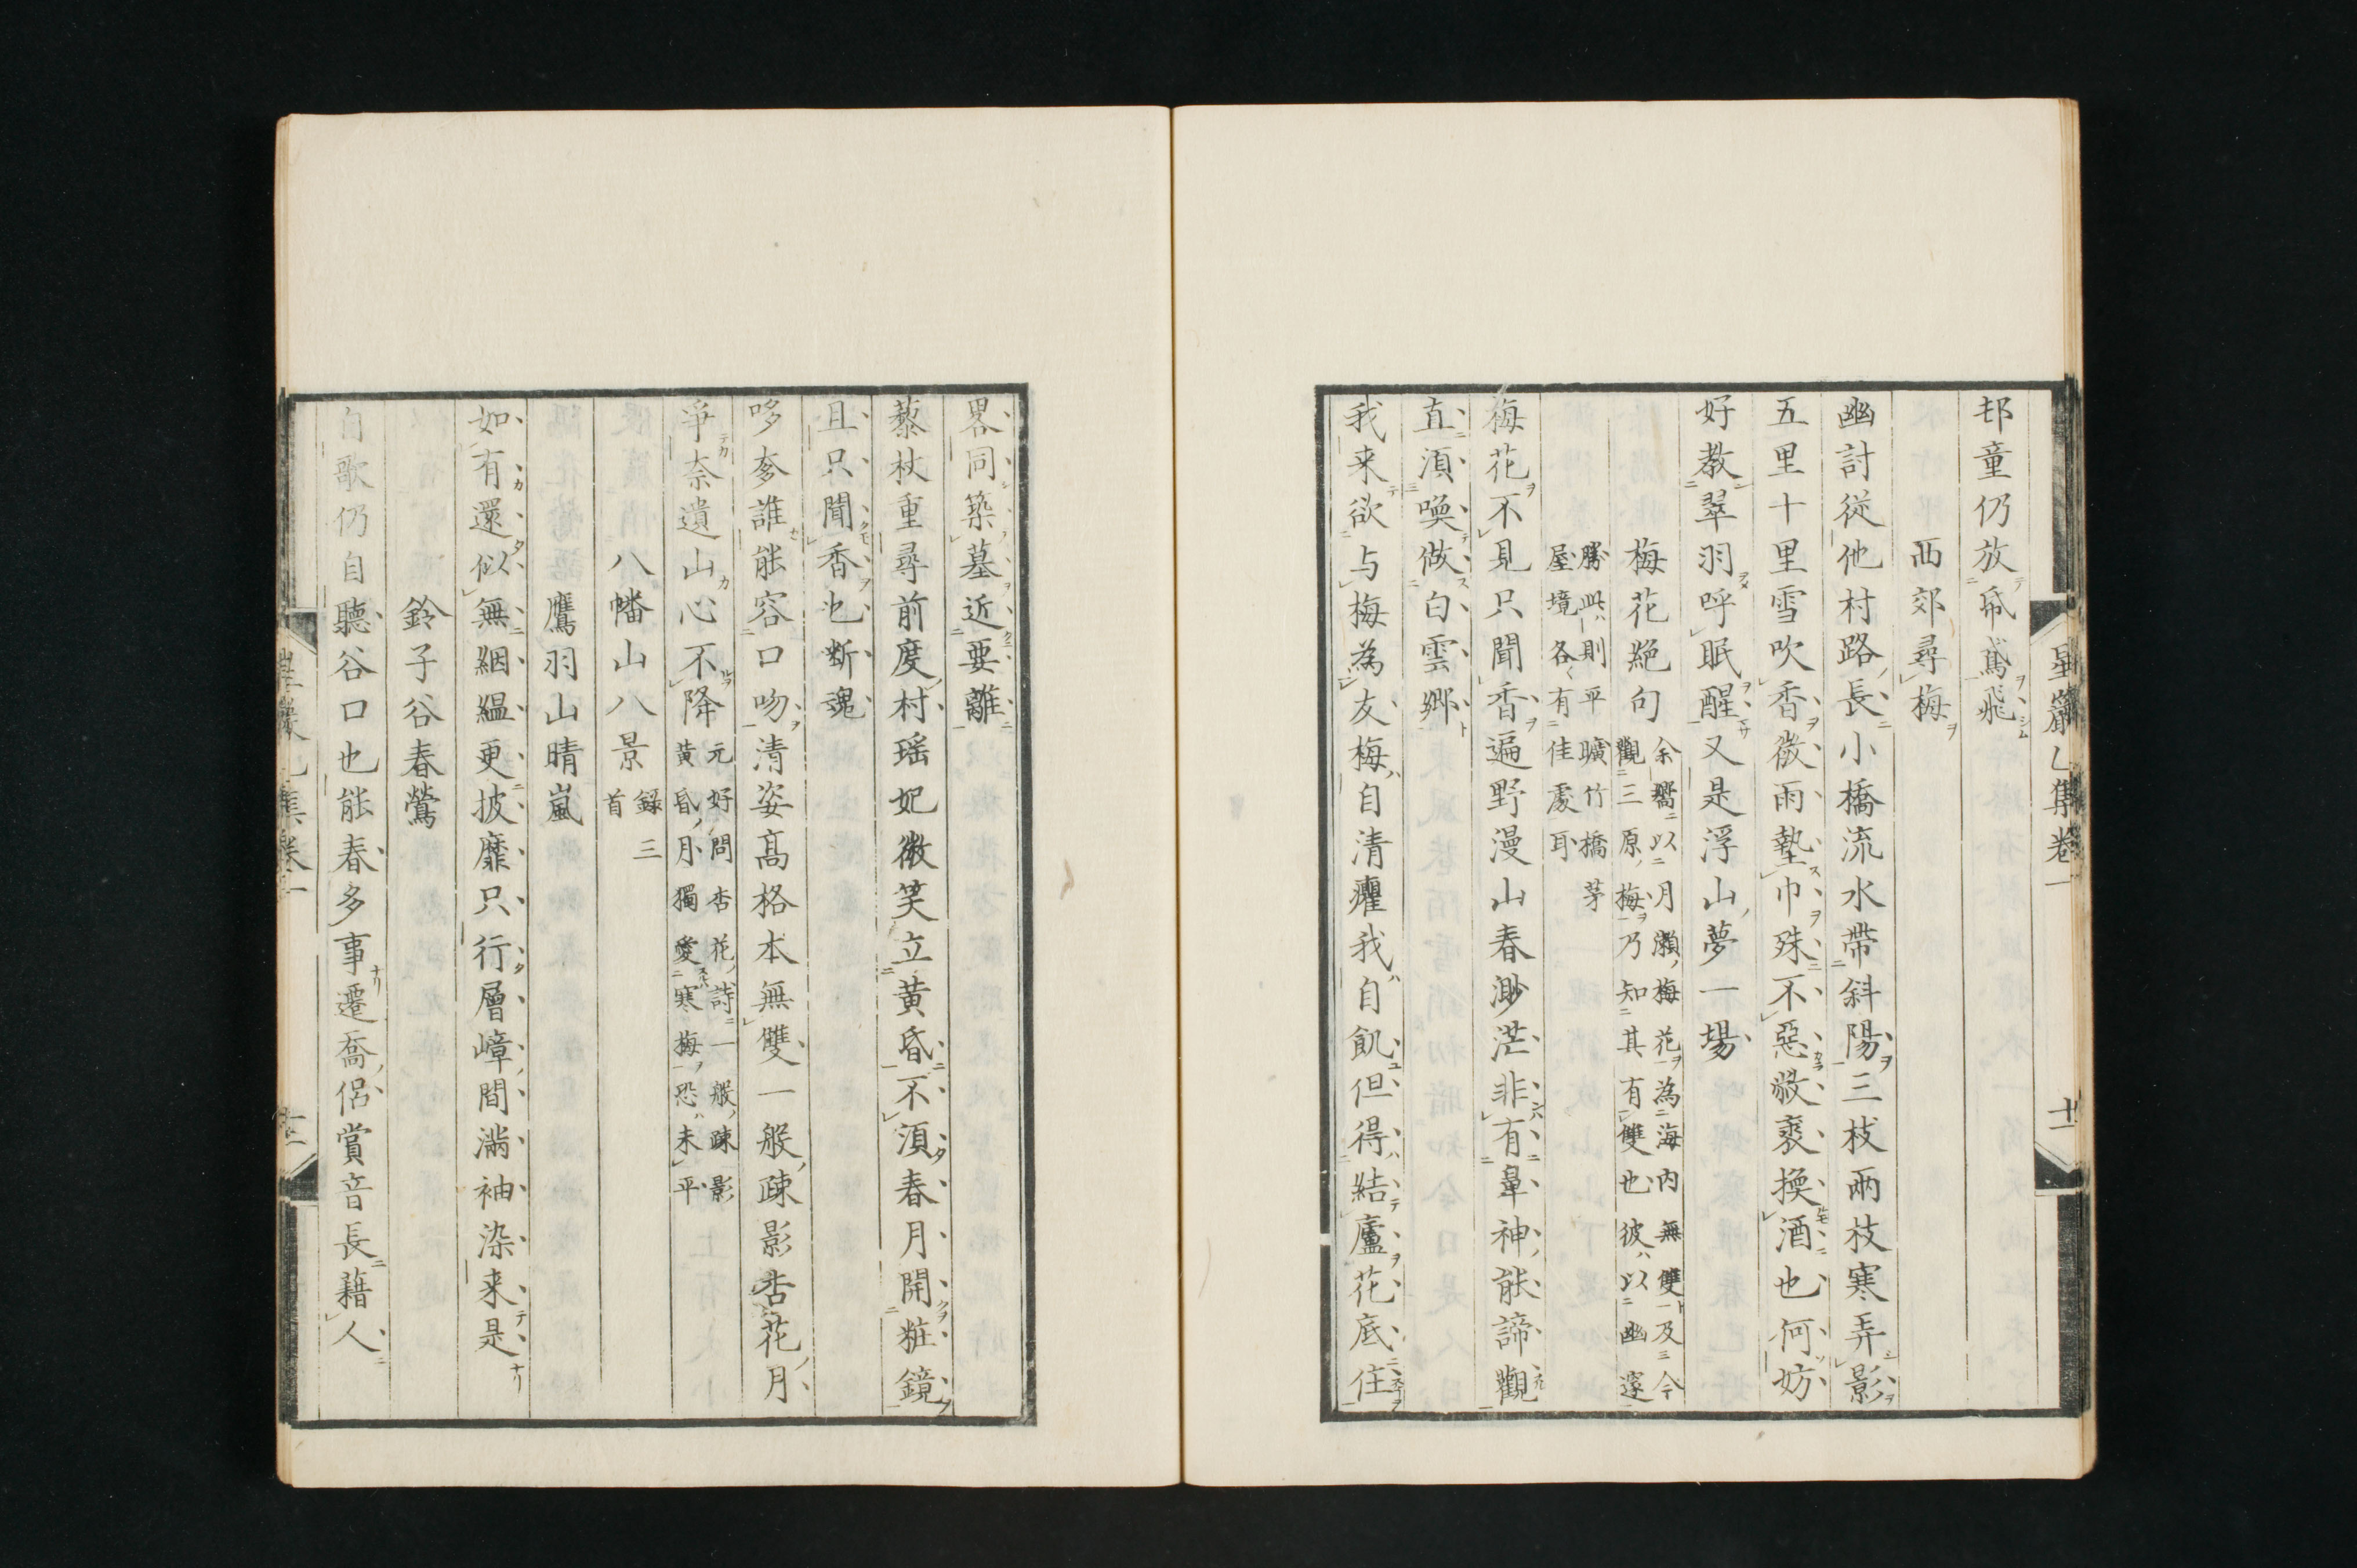 邨童仍放帋鳶飛
西郊尋梅
幽討従他村路長小橋流水帶斜陽三枝兩枝寒弄影
五里十里雪吹香微雨墊巾殊不惡敝裘換酒也何妨
好教翠羽呼眠醒又是浮山夢一場
梅花絶句
余嚮以月瀬梅花為海内無雙及今
觀三原梅乃知其有雙也彼以幽邃
勝此則平曠竹橋茅
屋境各有佳處耳
梅花不見只聞香遍野漫山春渺茫非有鼻神能諦觀
直湏喚做白雲郷
我来欲与梅為友梅自清癯我自飢但得結廬花底住
畧同築墓近要離
藜杖重尋前度村瑶妃微笑立黄昏不湏春月開粧鏡
且只聞香也断魂
哆奓誰能容口吻清姿髙格本無雙一般疎影杏花月
爭奈遺山心不降
元好問杏花詩一般疎影
黄昏月獨愛寒梅恐未平
八幡山八景
録三
首
鷹羽山晴嵐
如有還似無絪縕更披靡只行層嶂間滿袖染来是
鈴子谷春鶯
自歌仍自聽谷口也能春多事遷喬侶賞音長藉人
星巖乙集卷一
十一